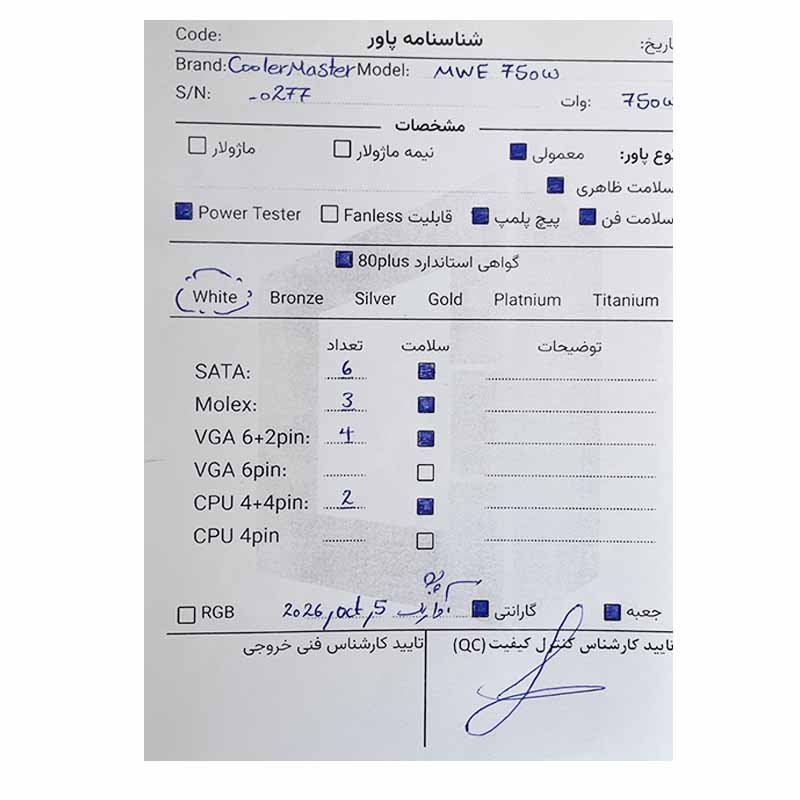 Code: شناسنامه پاور تاریخ:
Brand: CoolerMaster Model: MWE 750W
S/N: -0277 وات: 750W
مشخصات
نوع پاور: معمولی نیمه ماژولار ماژولار
سلامت ظاهری
سلامت فن پیچ پلمپ قابلیت Fanless Power Tester
گواهی استاندارد 80plus
White Bronze Silver Gold Platnium Titanium
تعداد سلامت توضیحات
SATA: 6
Molex: 3
VGA 6+2pin: 4
VGA 6pin:
CPU 4+4pin: 2
CPU 4pin
جعبه گارانتی 2026, oct, 5 RGB
تایید کارشناس کنترل کیفیت (QC) تایید کارشناس فنی خروجی